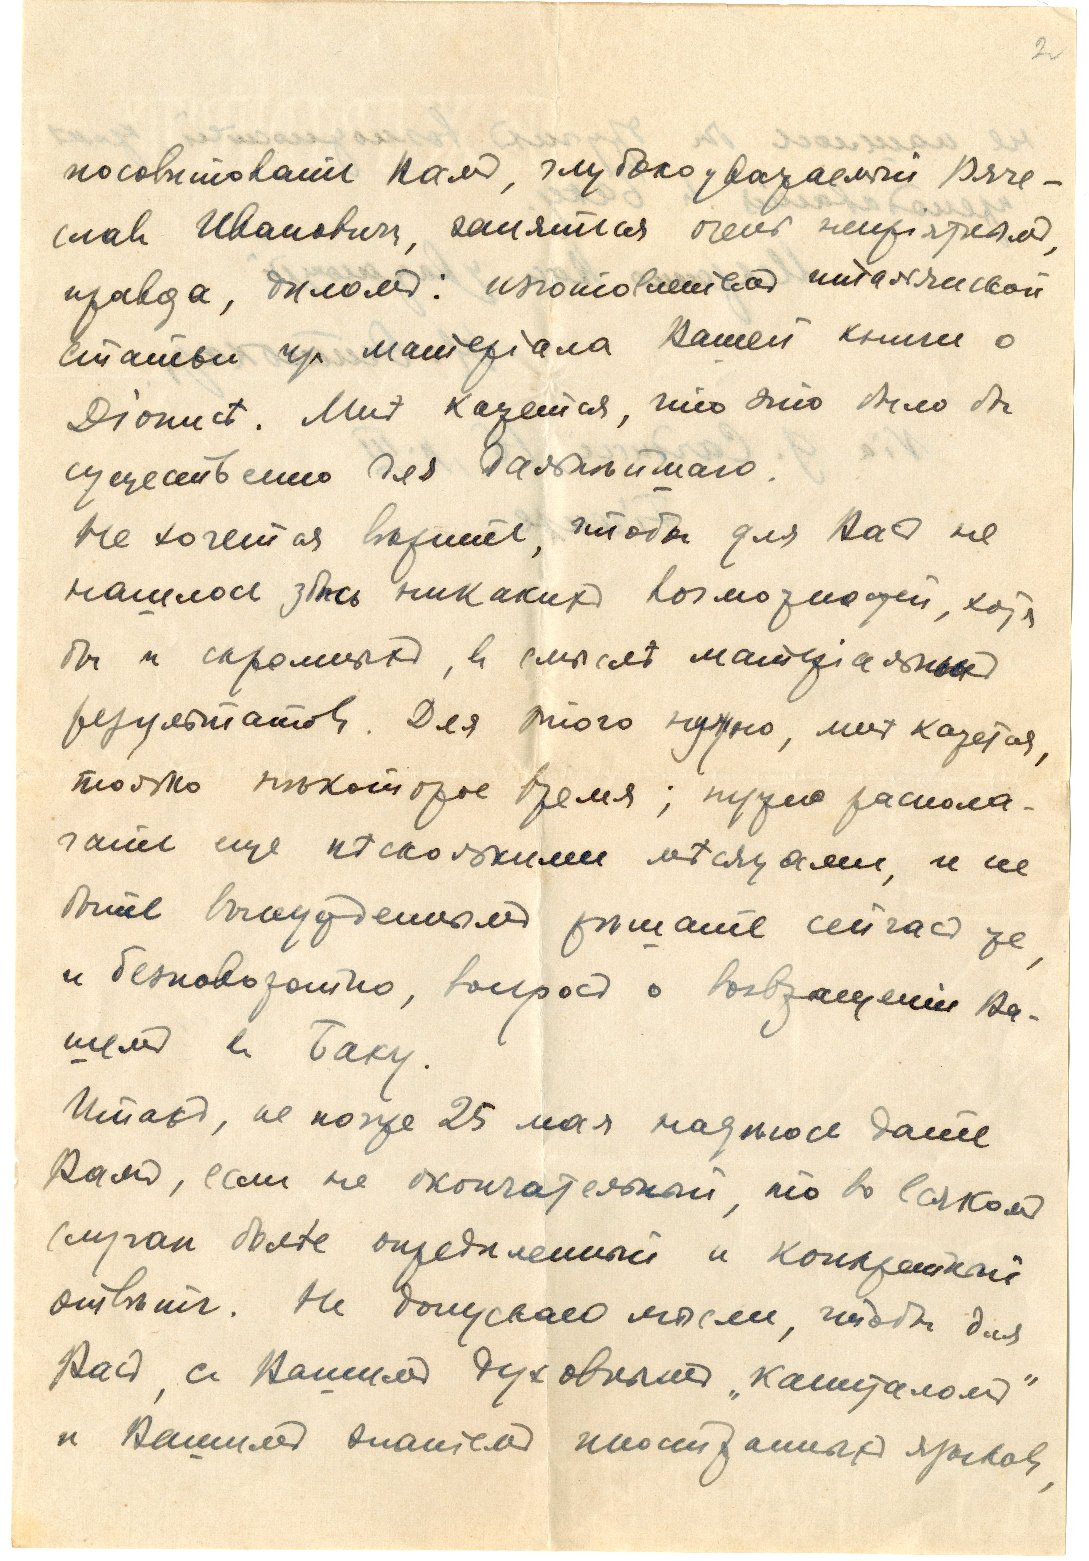 2
посовѣтовать Вамъ, глубокоуважаемый Вяче-
славъ Ивановичъ, заняться очень непріятнымъ,
правда, дѣломъ: изготовленіемъ итальянской
статьи изъ матеріала Вашей книги о
Діонисѣ. Мнѣ кажется, что это было бы
существенно для дальнѣйшаго.
Не хочется вѣрить, чтобы для Васъ не
нашлось здѣсь никакихъ возможностей, хотя
бы и скромныхъ, въ смыслѣ матеріальныхъ
результатовъ. Для этого нужно, мнѣ кажется,
только нѣкоторое время; нужно распола-
гать еще нѣсколькими мѣсяцами, и не
быть вынужденнымъ рѣшать сейчасъ же,
и безповоротно, вопросъ о возвращеніи Ва-
шемъ въ Баку.
Итакъ, не позже 25 мая надѣюсь дать
Вамъ, если не окончательный, то во всякомъ
случаѣ болѣе опредѣленный и конкретный
отвѣтъ. Не допускаю мысли, чтобы для
Васъ, съ Вашимъ духовнымъ „капиталомъ”
и Вашимъ знаніемъ иностранныхъ языковъ,